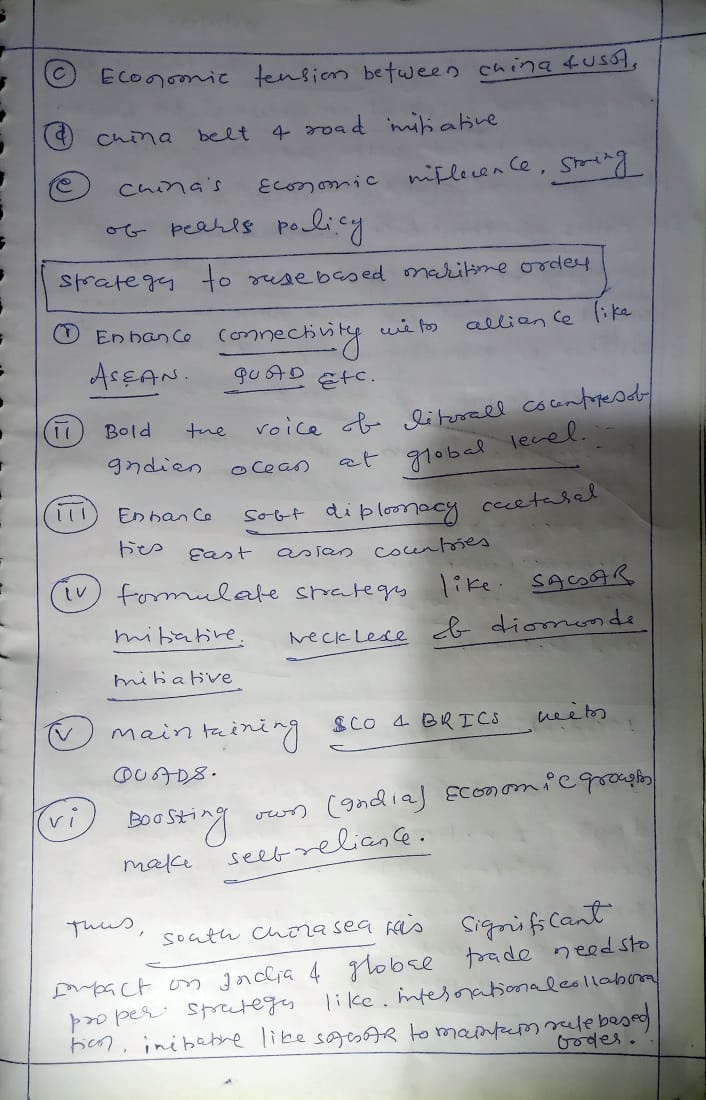 (c) Economic tension between china & USA.
(d) china belt & road initiative
(e) China's Economic influence, string
of pearls policy
strategy to rule based maritime order
(i) Enhance connectivity with alliance like
ASEAN. QUAD Etc.
(ii) Bold the voice of litorall countries of
Indian ocean at global level.
(iii) Enhance soft diplomacy cultural
ties East asian countries
(iv) formulate strategy like. SAGAR
initiative. Necklese of diomonds
initiative
(v) maintaining SCO & BRICS with
QUADS.
(vi) Boosting own (India) Economic growth
make self reliance.
Thus, south china sea has significant
impact on India & global trade needs to
proper strategy like. international collabora
tion, initiative like SAGAR to maintain rule based
order.